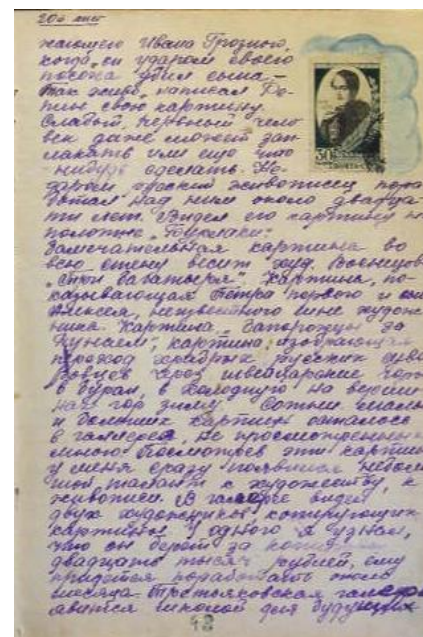 20й лист
жающего Ивана Грозного,
когда он ударом своего
посоха убил сына. –
Так живо написал Ре-
пин свою картину.
Слабый, нервный чело
век даже может зап-
лакать или еще что
-нибудь сделать. Не-
даром русский живописец пора
ботал над ним около двадца-
ти лет. Видел его картину н
полотно „Бурлаки".
Замечательная картина во
всю стену весит худ. Воснецов
„Три баватыря". Картина, по-
казывающая Петра первого и
Алексея, неизвестного мне худож
ника. Картина „Запорожцы за
Дунаем", картина, изображающая
проход храбрых русских
через швейцарские
в буран, в холодную на
нах гор зиму. Сотни малы
и больших картин осталось
в галлерее, не просмотренных
мною. Посмотрев эти картин
у меня сразу появился небол
шой талант к художеству, к
живописи. В галлерее видел
двух художников, копирующих
картины. У одного я узнал,
что он берет за
двадцать тысяч рублей, ему
придется поработать около
месяца. Третьяковская галер
авится школой для будущих
30
48